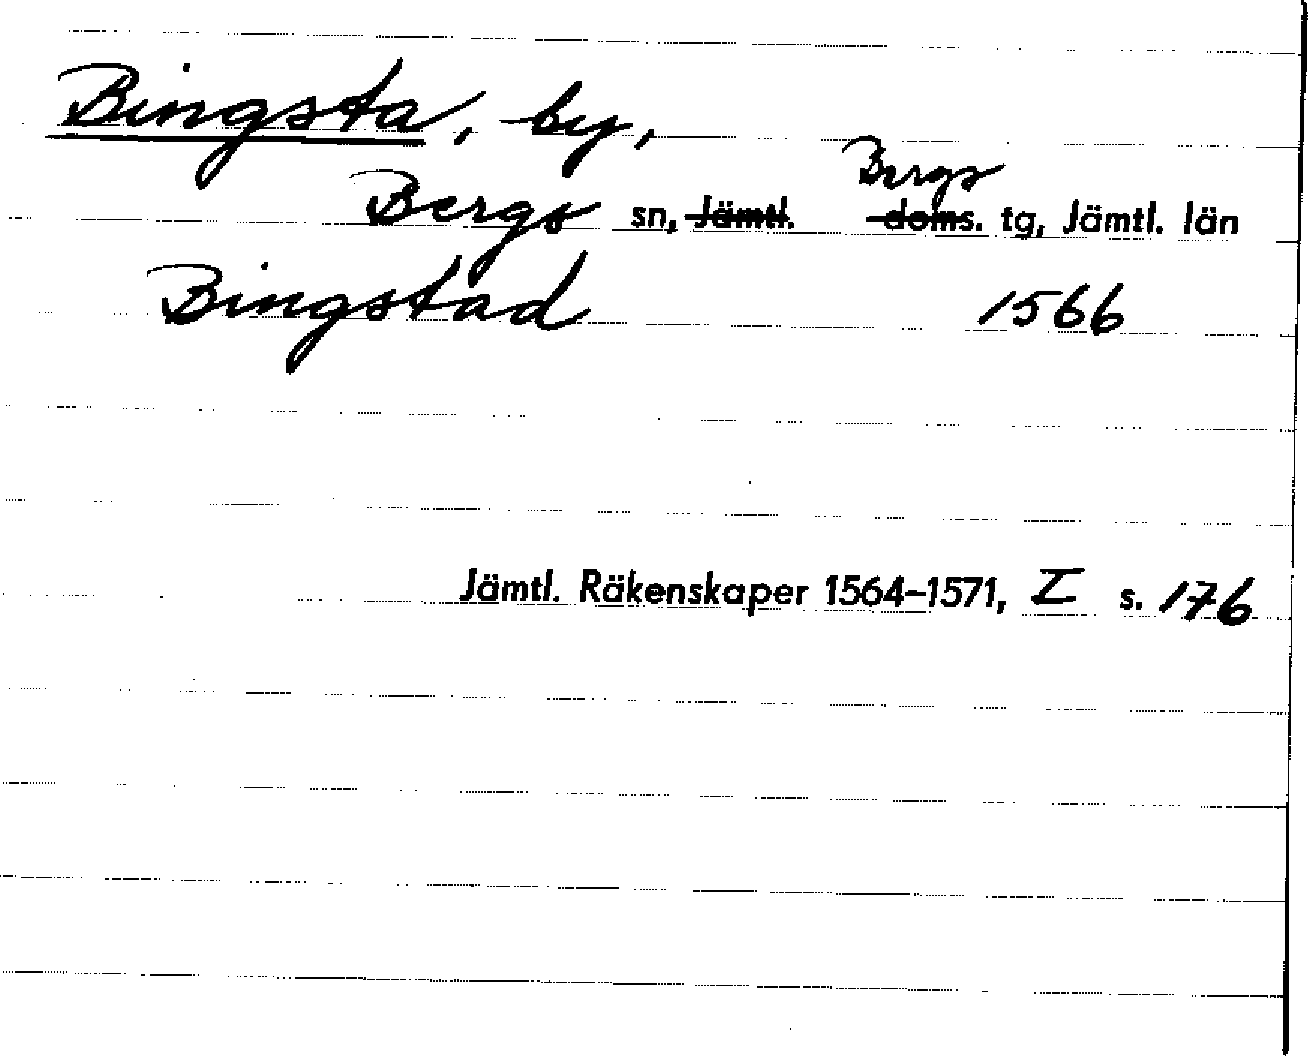 Bingsta, by,
Bergs sn, Jämtl. doms. Bergs tg, Jämtl. län
Bingstad 1566
Jämtl. Räkenskaper 1564-1571, I s. 176